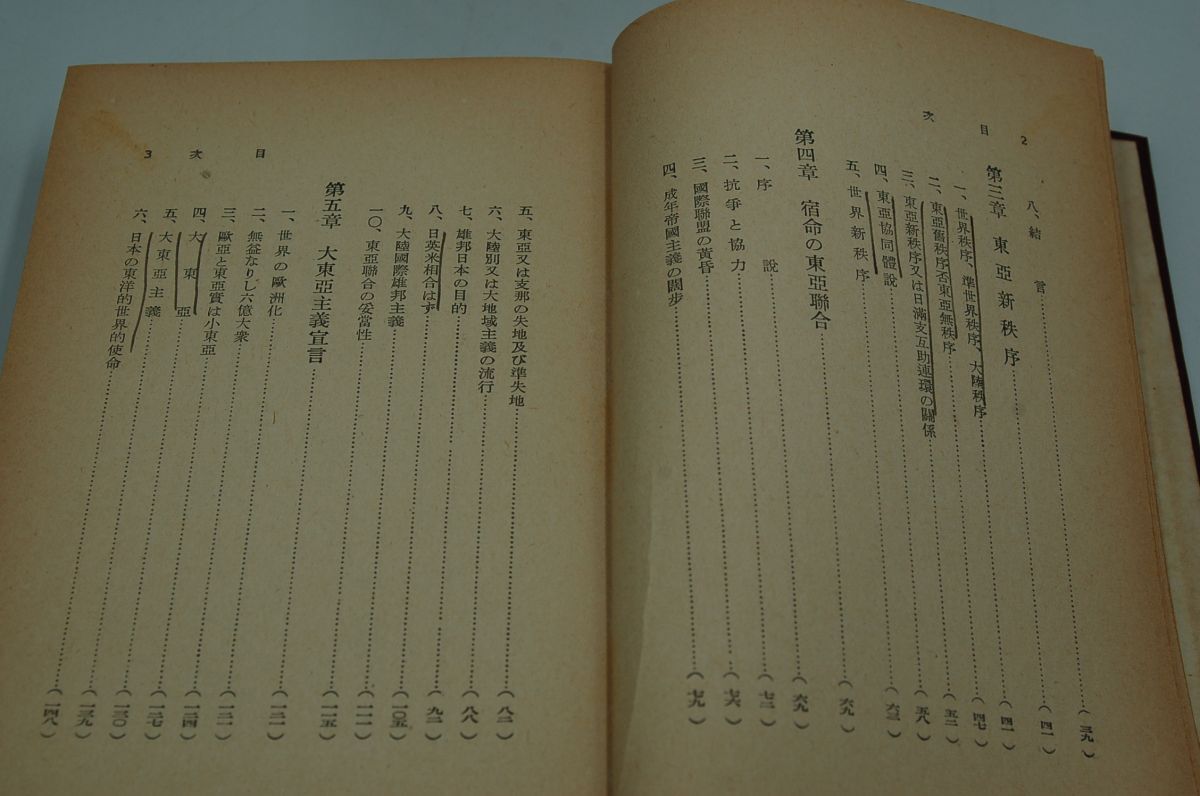 2
目次
八、結言……(三九)
第三章 東亞新秩序……(四一)
一、世界秩序、準世界秩序、大陸秩序……(四一)
二、東亞舊秩序否東亞無秩序……(四七)
三、東亞新秩序又は日滿支互助連環の關係……(五二)
四、東亞協同體說……(五八)
五、世界新秩序……(六三)
第四章 宿命の東亞聯合……(六九)
一、序說……(六九)
二、抗爭と協力……(七三)
三、國際聯盟の黃昏……(七六)
四、成年帝國主義の闊步……(七九)
五、東亞又は支那の失地及び準失地……(八二)
六、大陸別又は大地域主義の流行……(八八)
七、雄邦日本の目的……(九二)
八、日英米相合はず……(一〇五)
九、大陸國際雄邦主義……(一一一)
一〇、東亞聯合の妥當性……(一一五)
第五章 大東亞主義宣言……(一二一)
一、世界の歐洲化……(一二一)
二、無益なりし六億大衆……(一二四)
三、歐亞と東亞實は小東亞……(一二七)
四、大東亞……(一三〇)
五、大東亞主義……(一三九)
六、日本の東洋的世界的使命……(一四八)
目次
3